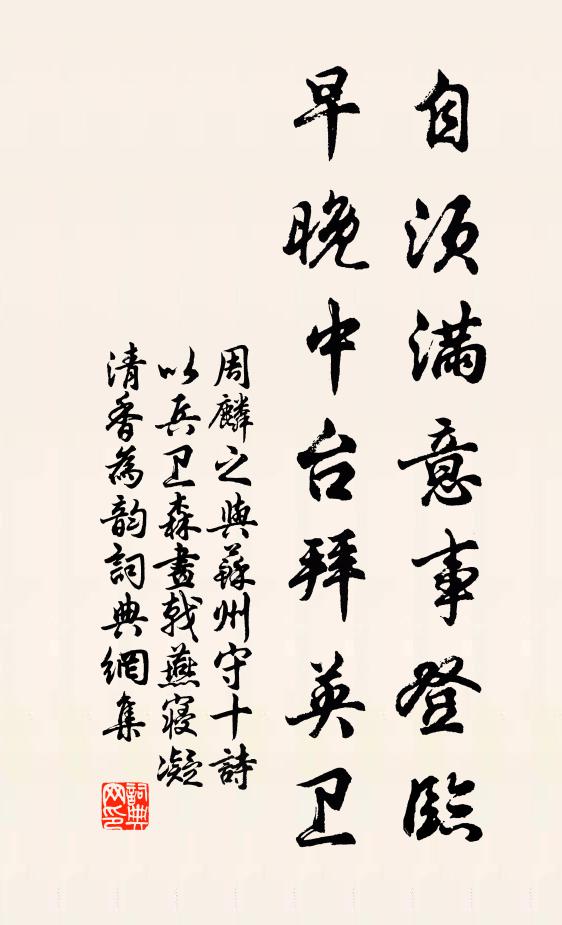 自须满意事登临
早晚中台拜英卫
周麟之與蘇州守十詩
以兵卫森畫戟燕寢凝
清香為韵詞典網集
詞典网印